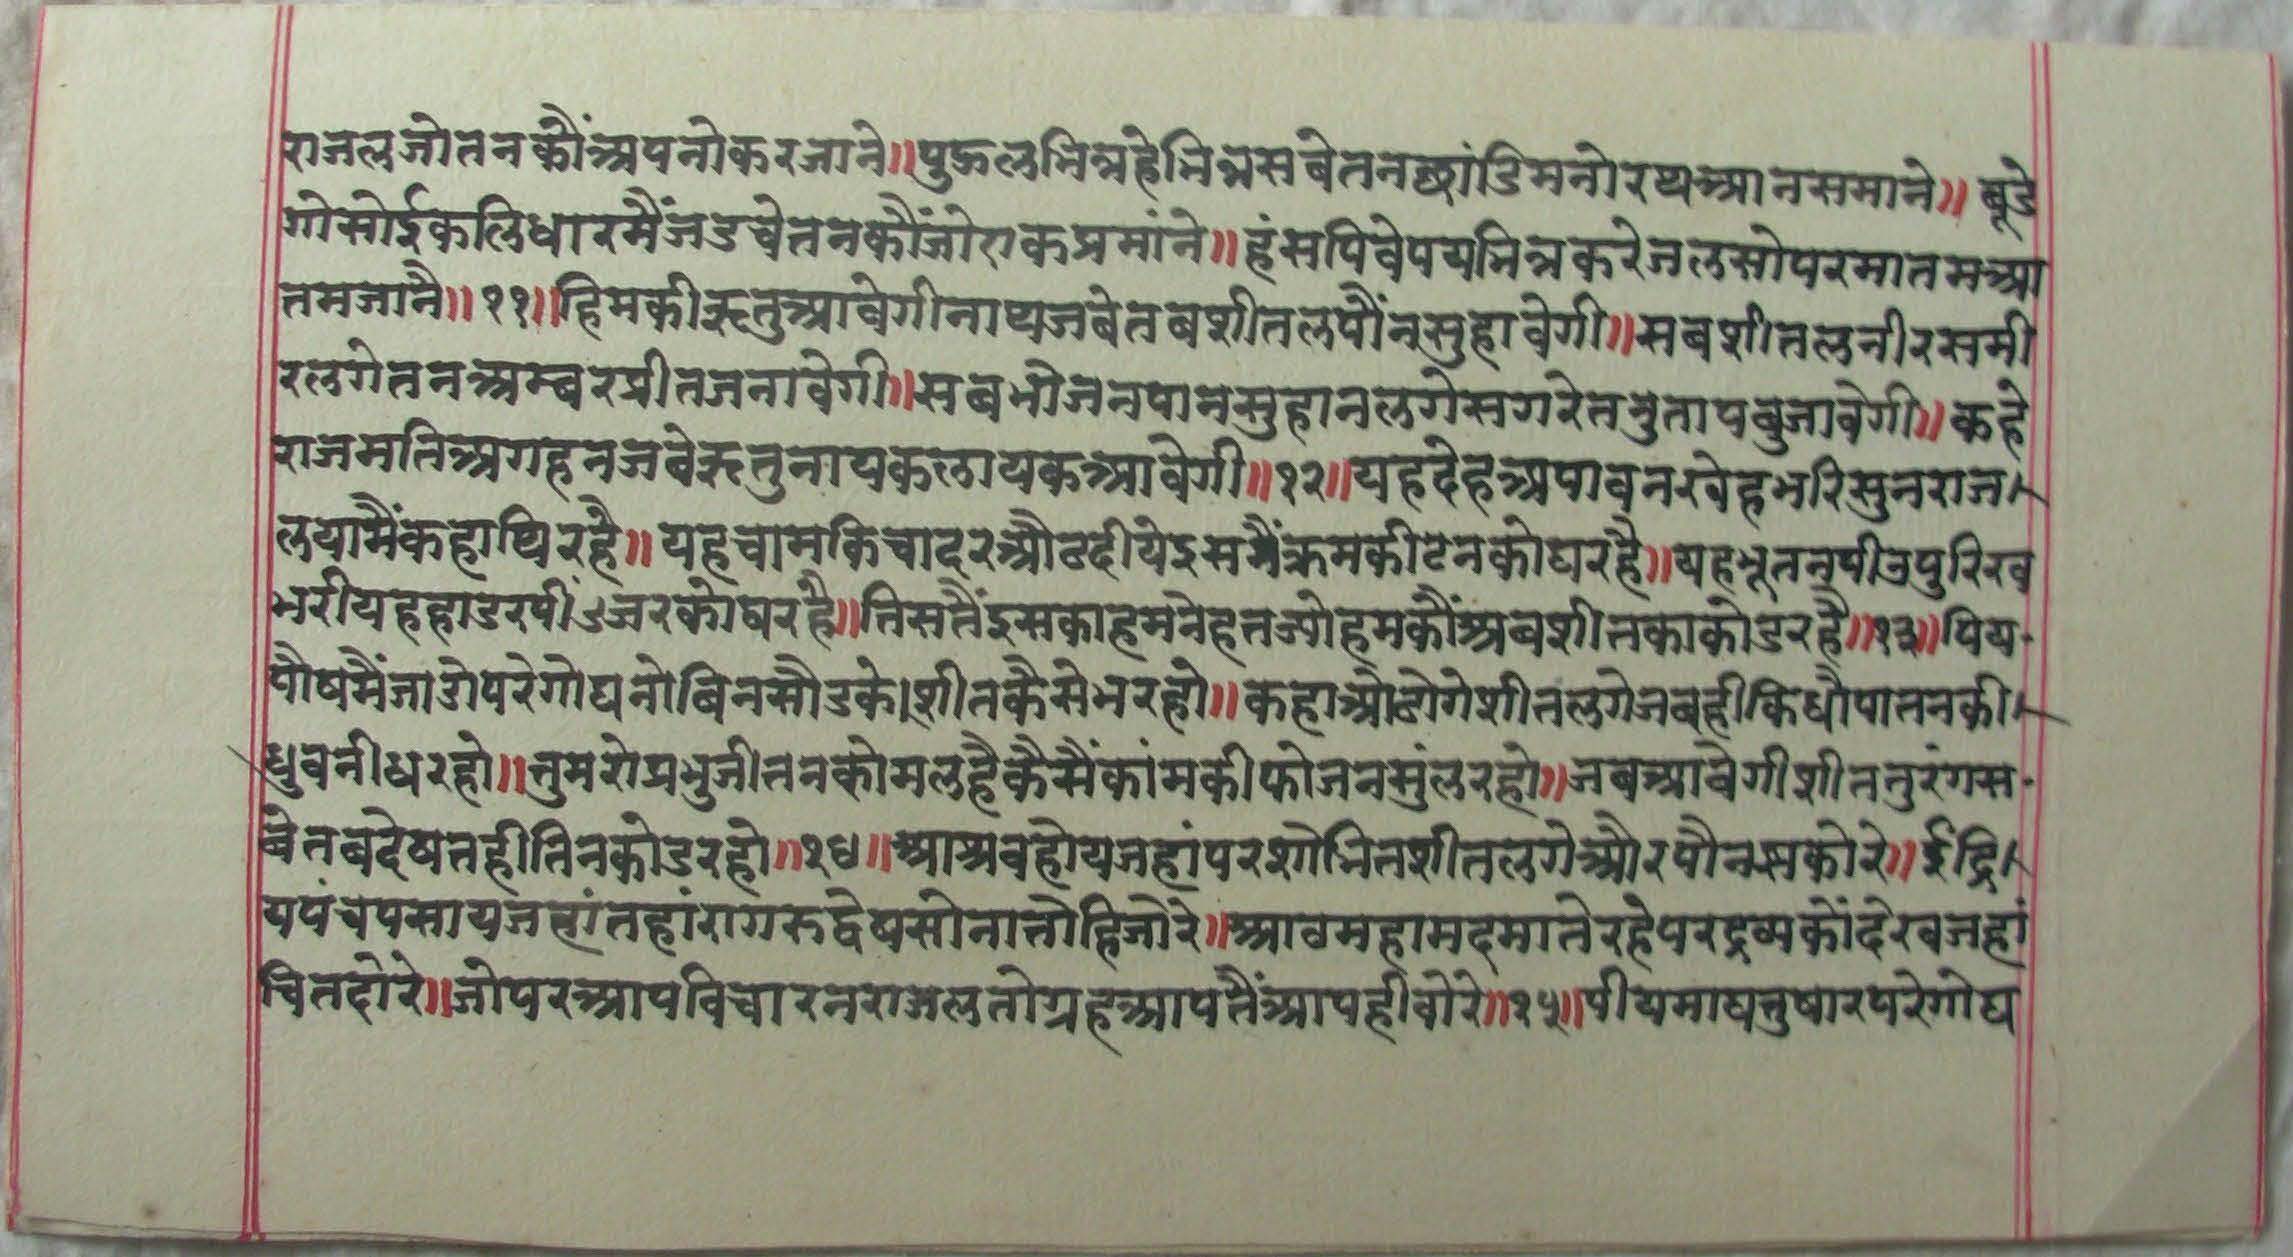 राजलजोतनकौंअपनोकरजाने॥पुद्गलभिन्नहेभिन्नसबेतनछांडिमनोरथआनसमाने॥बूडे
गोसोईकलिधारमैंजडचेतनकौंजोएकप्रमांने॥हंसपिवेपयभिन्नकरेजलसोपरमातमआ
तमजानै॥११॥हिमकीऋतुआवेगीनाथजबेतबशीतलपौंनसुहावेगी॥सबशीतलनीरसमी
रलगेतनअम्बरप्रीतजनावेगी॥सबभोजनपानसुहानलगेसगरेतनुतापबुजावेगी॥कहे
राजमतिअगहनजबेऋतुनायकलायकआवेगी॥१२॥यहदेहअपावनखेहभरिसुनराज
लयामैंकहाथिरहै॥यहचामकिचादरओढदीयेइसमैंक्रमकीटनकोघरहै॥यहभूतनपीउपुरिख
भरीयहहाडरपींजरकोघरहै॥तिसतैंइसकाहमनेहतज्योहमकौंअबशीतकाकोडरहै॥१३॥पिय
पौषमैंजाडोपरेगोघनोबिनसौडकेशीतकैसेभरहो॥कहाओढोगेशीतलगेजबहीकिधौपातनकी
धुवनीधरहो॥तुमरोप्रभुजीतनकोमलहैकैसैंकांमकीफोजनसुंलरहो॥जबआवेगीशीततुरंगस
बेतबदेषतहीतिनकोडरहो॥१४॥आश्रवहोयजहांपरशोभितशीतलगेऔरपौनझकोरे॥ईद्रि
यपंचपसायजहांतहांरागरुद्वेषसोनातोहिजोरे॥आठमहामदमातेरहेपरद्रव्यकौंदेखजहां
चितदोरे॥जोपरआपविचारनराजलतोग्रहआपतैंआपहीवोरे॥१५॥पीयमाघतुषारपरेगोघ